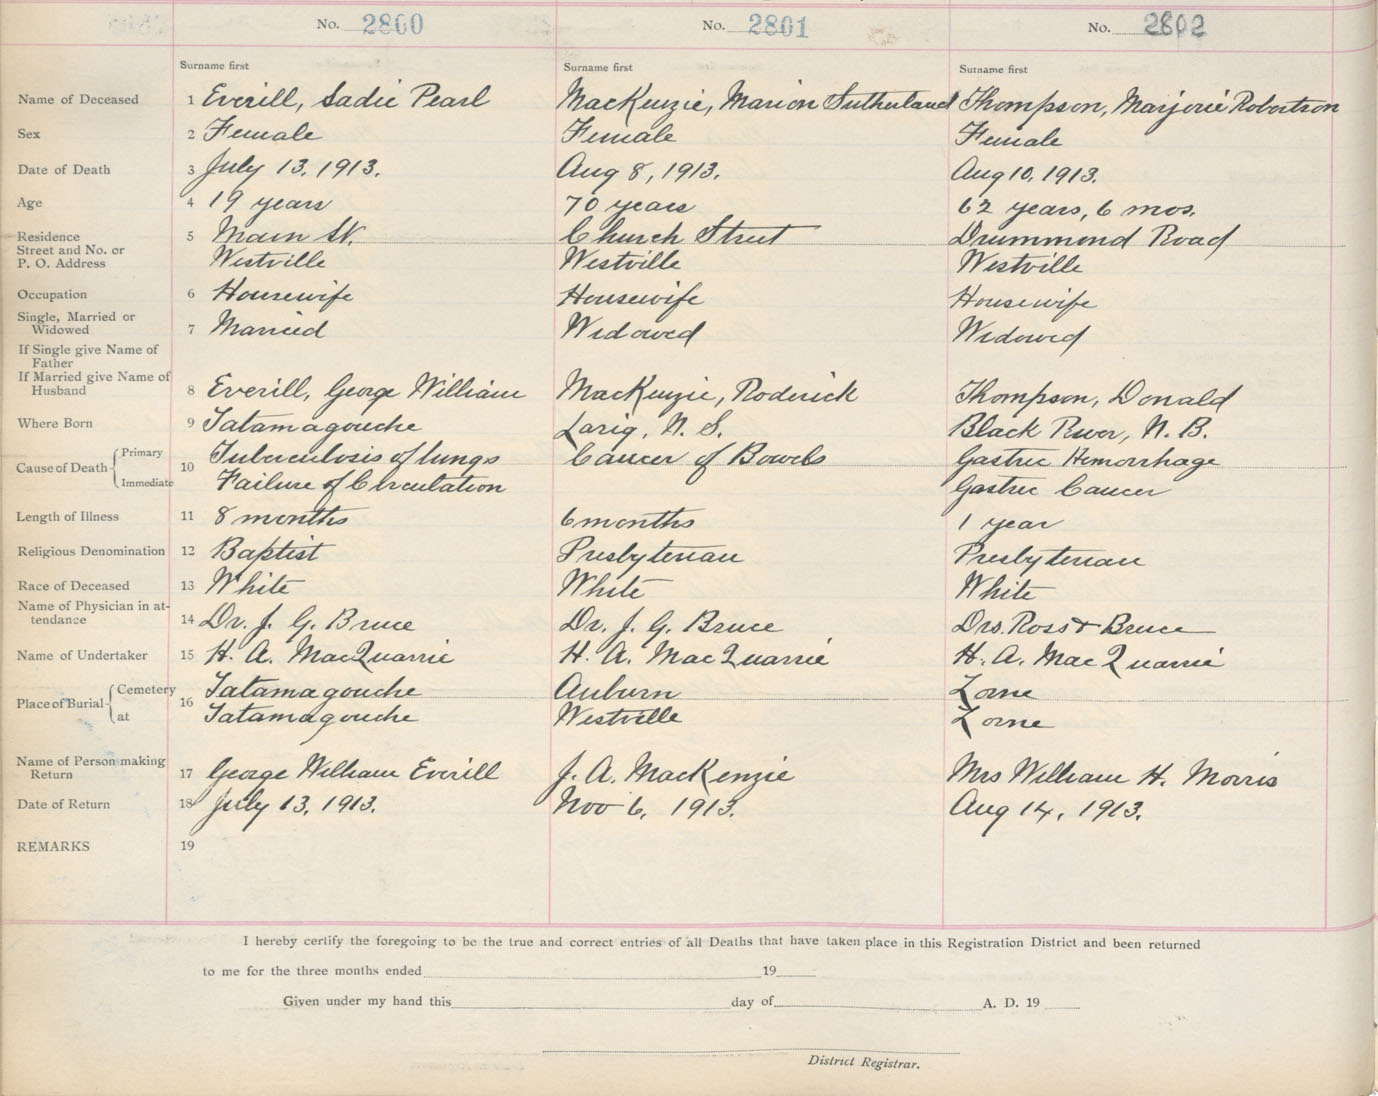 No. 2800 No. 2801 No. 2802
Surname first Surname first Surname first
Name of Deceased 1 Everill, Sadie Pearl MacKenzie, Marion Sutherland Thompson, Marjorie Robertson
Sex 2 Female Female Female
Date of Death 3 July 13, 1913. Aug 8, 1913. Aug 10, 1913.
Age 4 19 years 70 years 62 years, 6 mos.
Residence 5 Main St. Church Street Drummond Road
Street and No. or
P. O. Address Westville Westville Westville
Occupation 6 Housewife Housewife Housewife
Single, Married or
Widowed 7 Married Widowed Widowed
If Single give Name of
Father
If Married give Name of
Husband 8 Everill, George William MacKenzie, Roderick Thompson, Donald
Where Born 9 Tatamagouche N. S. Black River, N. B.
Cause of Death Primary 10 Tuberculosis of lungs Cancer of Bowels Gastric Hemorrhage
Immediate Failure of Circulation Gastric Cancer
Length of Illness 11 8 months 6 months 1 year
Religious Denomination 12 Baptist Presbyterian Presbyterian
Race of Deceased 13 White White White
Name of Physician in at-
tendance 14 Dr. J. G. Bruce Dr. J. G. Bruce Drs. Ross & Bruce
Name of Undertaker 15 H. A. MacQuarrie H. A. MacQuarrie H. A. MacQuarrie
Place of Burial Cemetery 16 Tatamagouche Auburn Lorne
at Tatamagouche Westville Lorne
Name of Person making
Return 17 George William Everill J. A. MacKenzie Mrs William H. Morris
Date of Return 18 July 13, 1913. Nov 6, 1913. Aug 14, 1913.
REMARKS 19
I hereby certify the foregoing to be the true and correct entries of all Deaths that have taken place in this Registration District and been returned
to me for the three months ended 19
Given under my hand this day of A. D. 19
District Registrar.